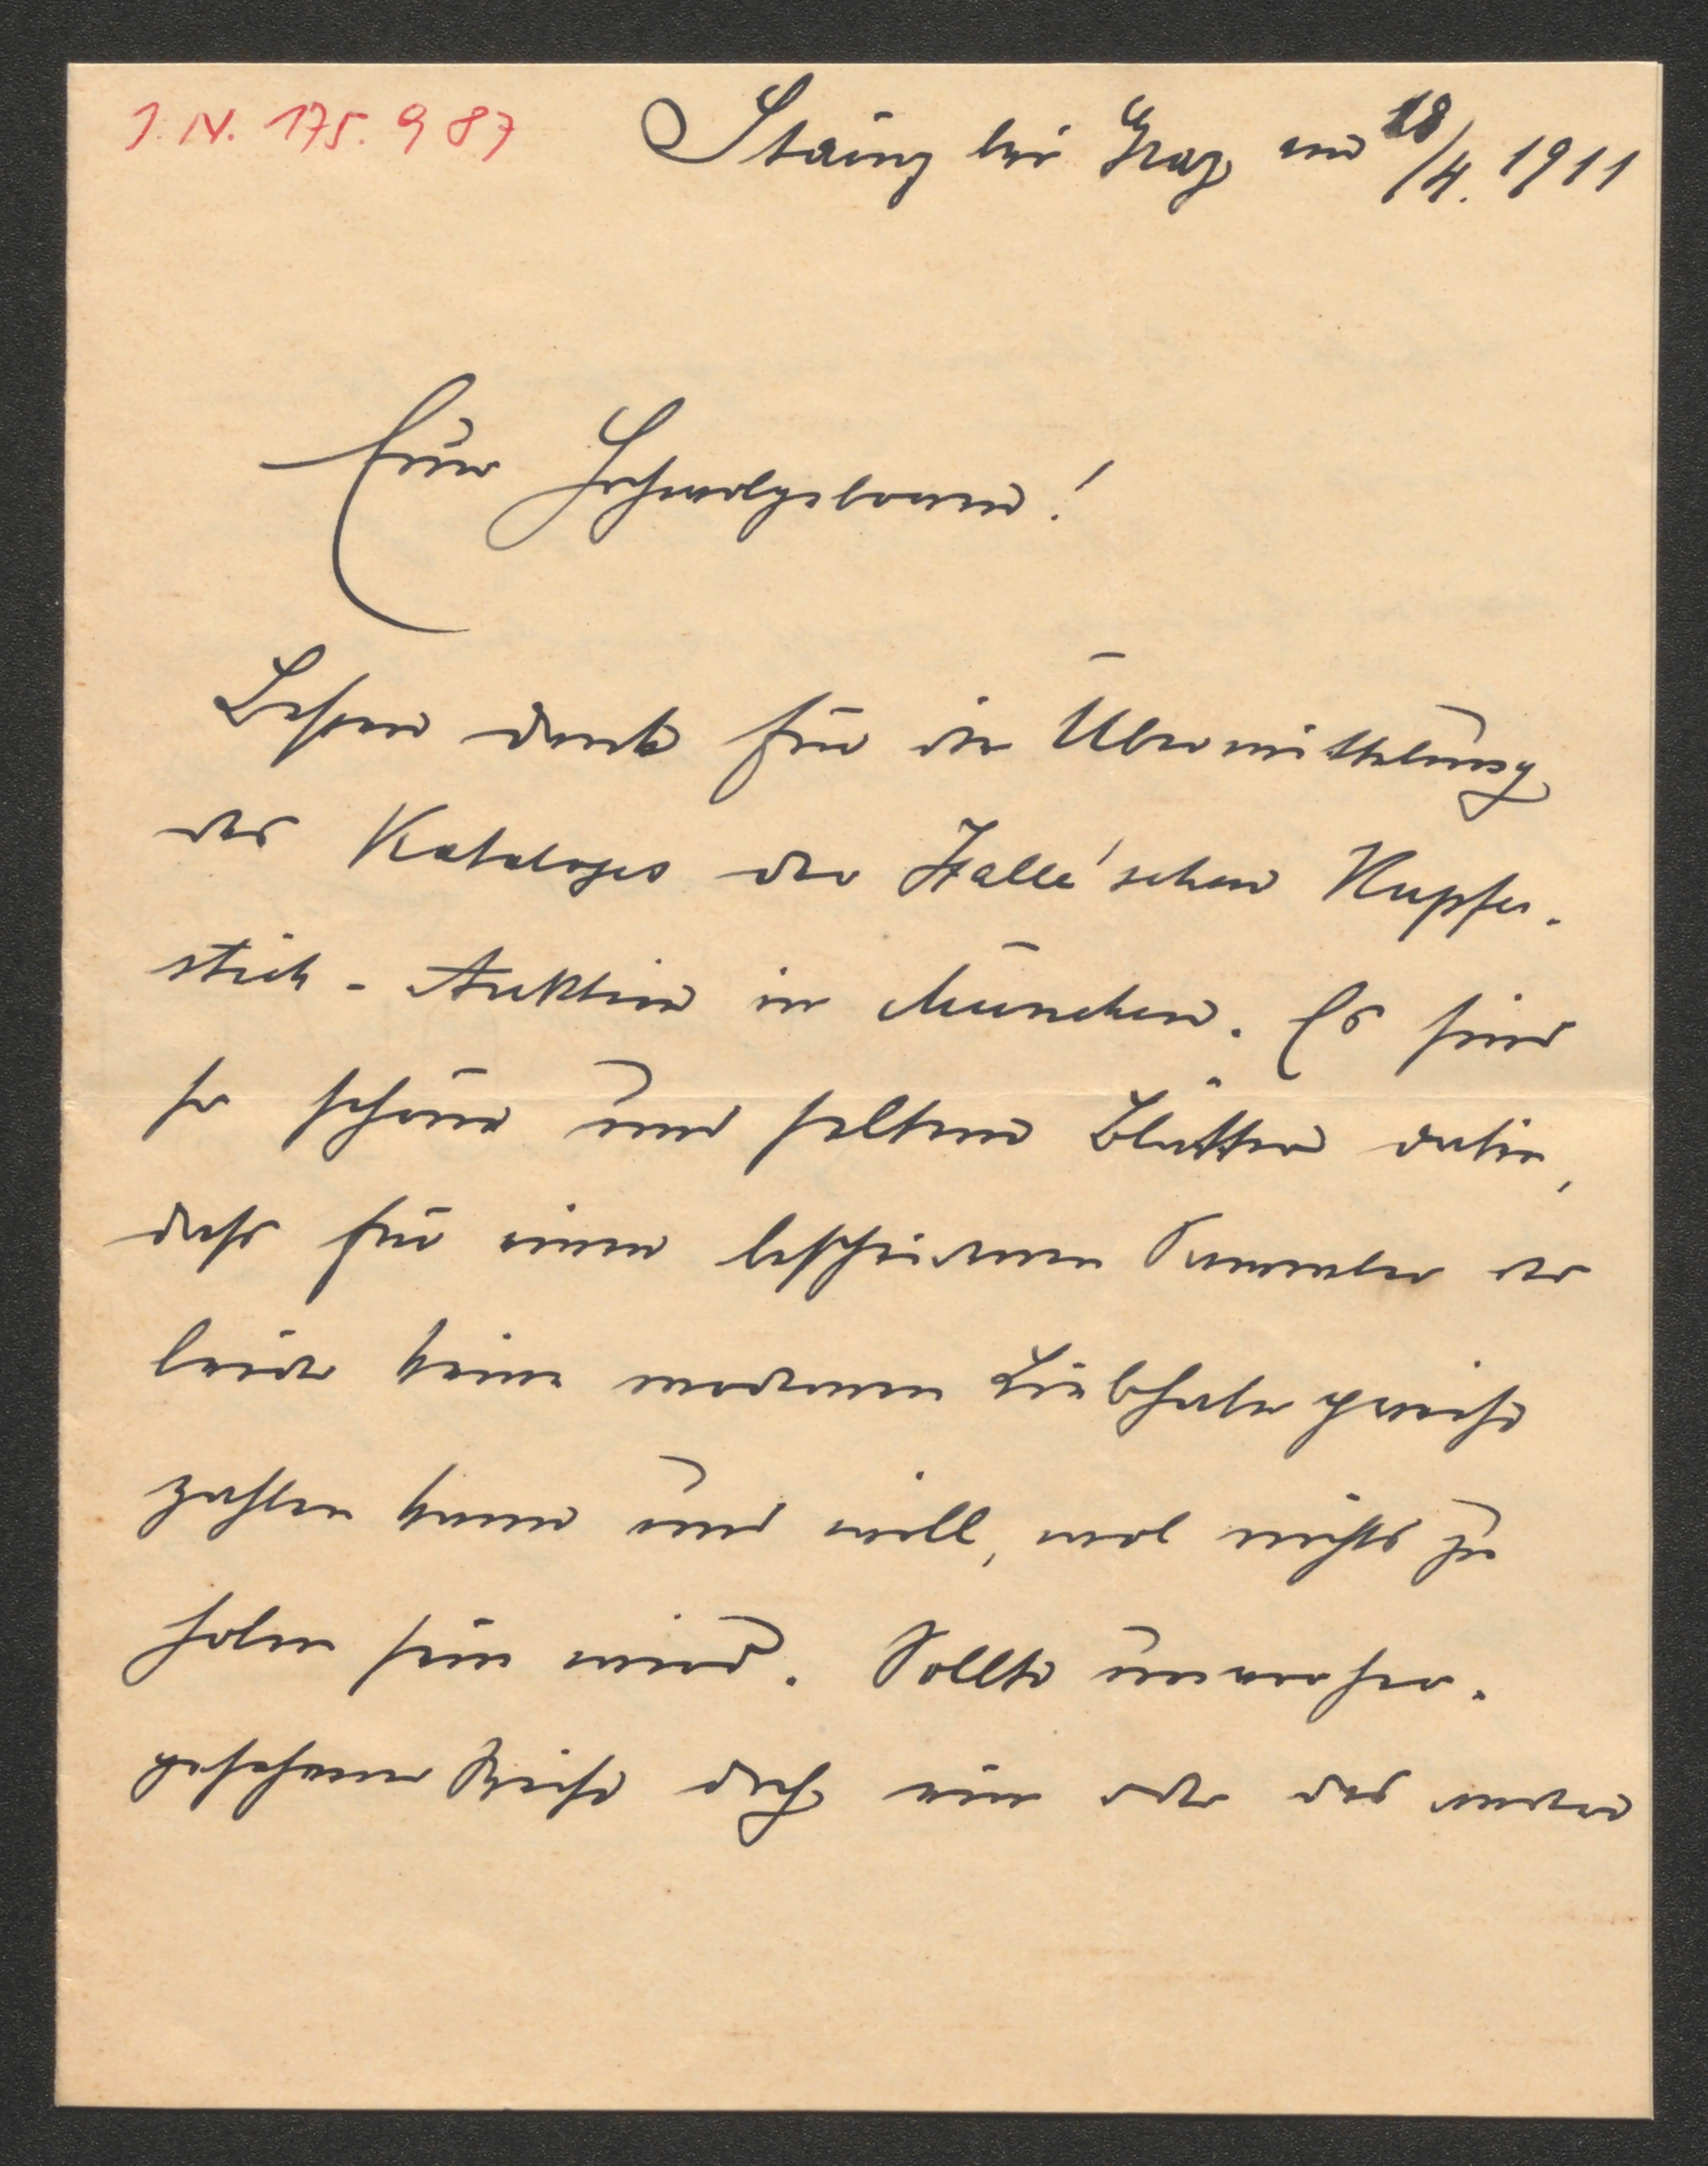 I.N. 175.987
Stainz bei Graz am 18/4. 1911
Euer Hochwolgeboren!
Besten Dank für die Übermittelung
des Kataloges der Halle'schen Kupfer-
stich-Auktion in München. Es sind
so schöne und seltene Blätter dabei,
dass für einen bescheidenen Sammler der
leider keine modernen Liebhaberpreise
zahlen kann und will, wol nichts zu
holen sein wird. Sollte unvorher-
gesehener Weise doch ein oder das andere